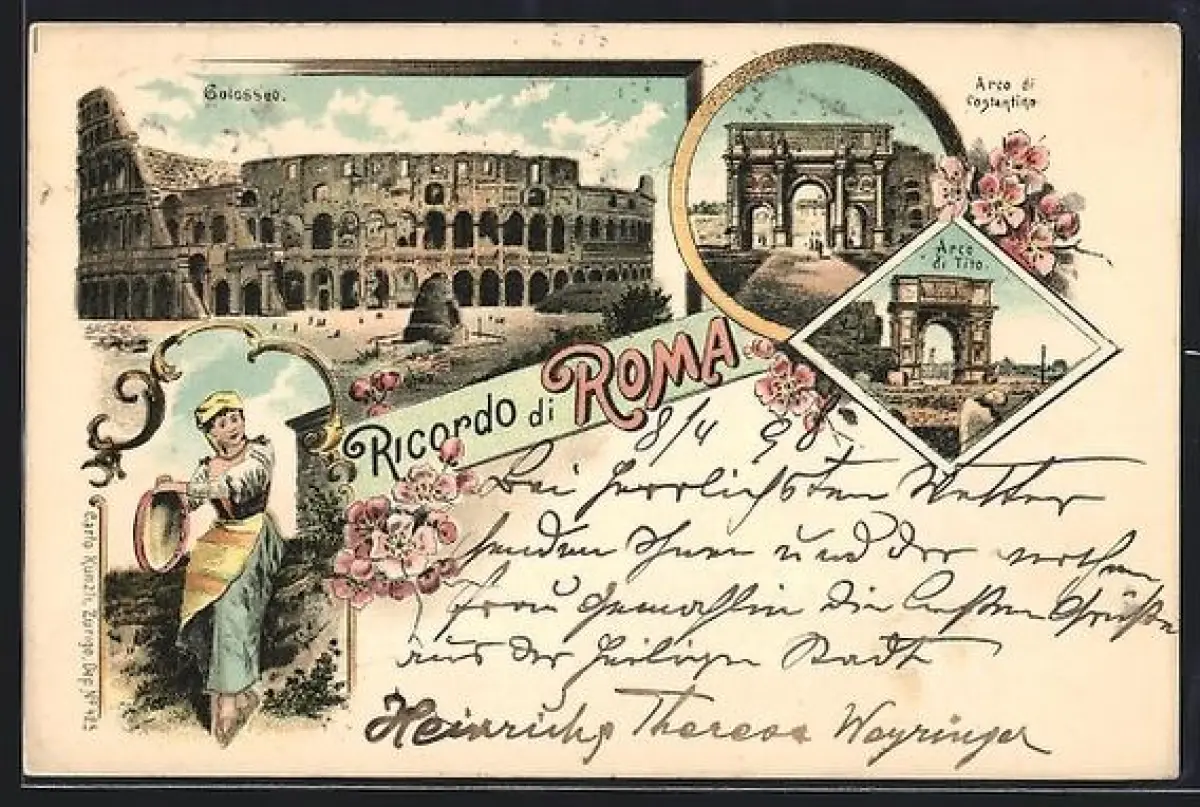 Colosseo.
Arco di
Costantino
Arco
di Tito.
Ricordo di ROMA
8/4 98
Bei herrlichsten Wetter
senden Ihnen und der werthen
Frau Gemahlin die besten Grüße
aus der heiligen Stadt
Heinrich Theresa Wayringer
Carlo Künzli, Zurigo, Dep. Nº 425